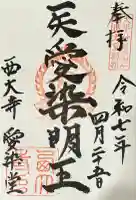 奉拝
令和七年
四月二十五日
愛染明王
西大寺
愛染堂